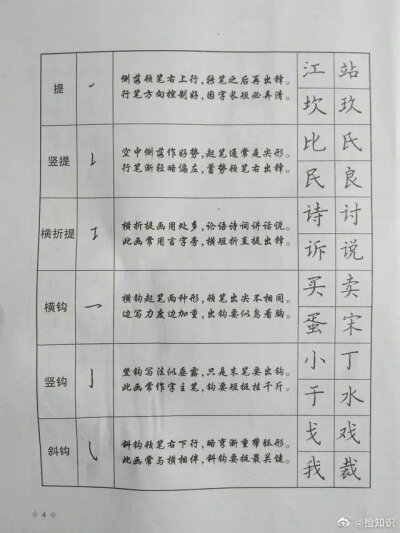 提
侧落领笔右上行，转笔之后再出锋。
行笔方向控制好，因字长短必弄清。
江 站
坎 玖
竖提
空中侧落作好势，起笔通常是尖形。
行笔渐轻略偏左，蓄势领笔右出锋。
比 氏
民 良
横折提
横折提画用处多，论语诗词讲话说。
此画常用言字旁，横短折直提出锋。
诗 讨
诉 说
横钩
横钩起笔两种形，领笔出尖不相同。
边写力度边加重，出钩要似鸟看胸。
买 卖
蛋 宋
竖钩
竖钩写法似垂露，只是末笔要出钩。
此画常作字主笔，钩要短挺挂千斤。
小 丁
于 水
斜钩
斜钩领笔右下行，略弯渐重带弧形。
此画常与横相伴，斜钩要挺最关键。
戈 戏
我 裁
4
@捡知识